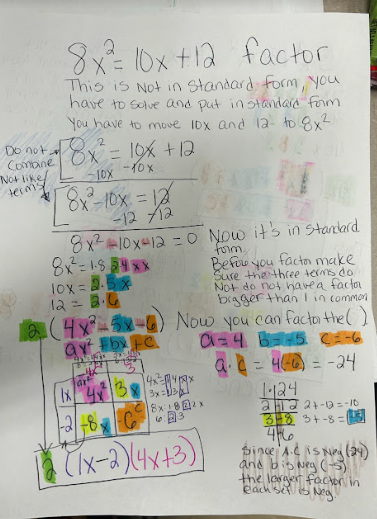 8x² = 10x + 12 factor
This is Not in Standard form, you
have to solve and put in standard form
You have to move 10x and 12 to 8x²
Do not
Combine
Not like
terms
8x² = 10x + 12
-10x -10x
8x² - 10x = 12
-12 -12
8x² - 10x - 12 = 0
Now it's in Standard
form.
Before you factor make
Sure the three terms do
Not do not have a factor
bigger than 1 in common
10x = 2·5x
12 = 2·6
2 (4x² - 5x - 6)
Now you can factor the ( )
ax² + bx + c
a = 4 b = -5 c = -6
a · c = 4(-6) = -24
1x 4x² 3x
-2 -8x -6
1 · 24
2 12 2 + -12 = -10
3 -8 3 + -8 = -5
4 6
2 (1x - 2)(4x + 3)
Since A·C is Neg (24)
and b is Neg (-5)
the larger factor in
each set is Neg